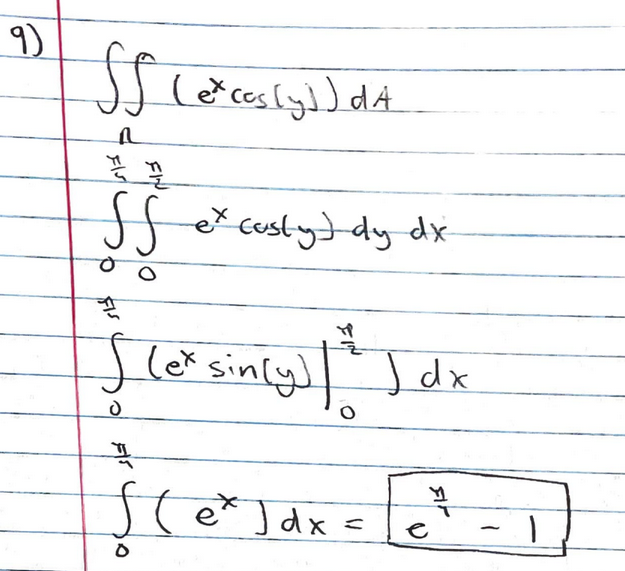 9)
∬ (e^x cos(y)) dA
R
π/4 π/2
∫∫ e^x cos(y) dy dx
0 0
π/4
∫ (e^x sin(y) |_0^{π/2} ) dx
0
π/4
∫ (e^x) dx = e^{π/4} - 1
0